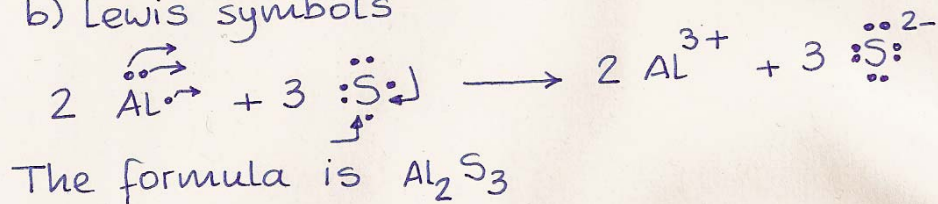 b) Lewis symbols
2 Al + 3 S → 2 Al³⁺ + 3 S²⁻
The formula is Al₂S₃